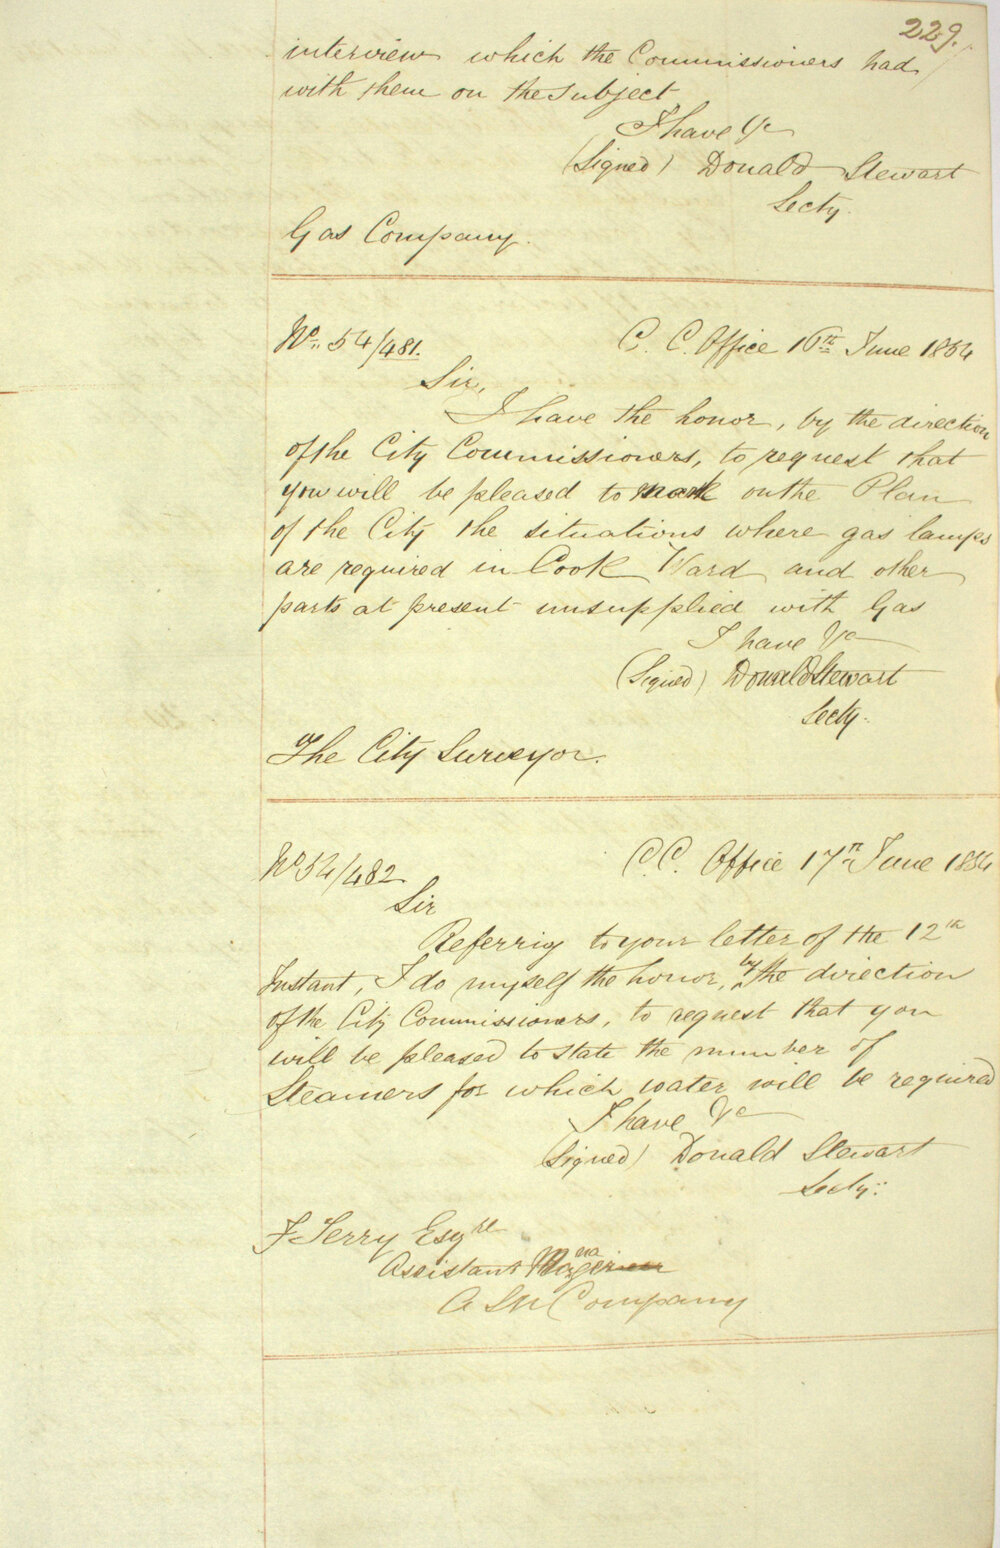 229.
interview which the Commissioners had
with them on the subject
I have &c
(Signed) Donald Stewart
Secty.
Gas Company.
No. 54/481.
C. C. Office 16th June 1854
Sir,
I have the honor, by the direction
of the City Commissioners, to request that
you will be pleased to mark on the Plan
of the City the situations where gas lamps
are required in Cook Ward and other
parts at present unsupplied with Gas
I have &c
(Signed) Donald Stewart
Secty.
The City Surveyor.
No 54/482
C.C. Office 17th June 1854
Sir
Referrig to your letter of the 12th
Instant, I do myself the honor, by the direction
of the City Commissioners, to request that you
will be pleased to state the number of
Steamers for which water will be required
I have &c
(Signed) Donald Stewart
Secty:
F Terry Esqre
Assistant
A SN Company